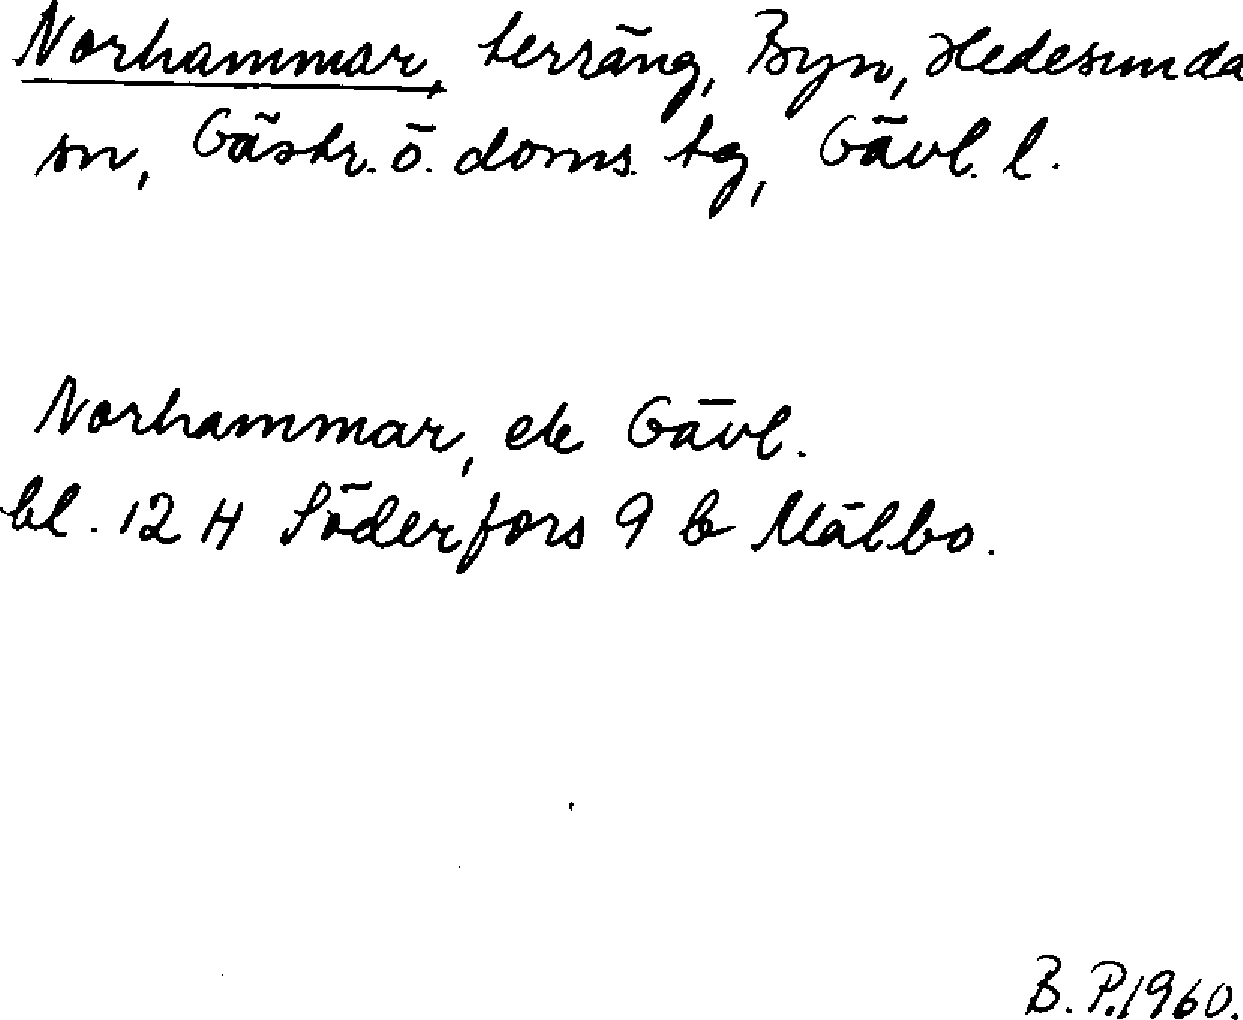 Norhammar, terräng, Byn, Hedesunda
sn, Gästr. ö. doms. tg, Gävl. l.
Norhammar, ek Gävl.
bl. 12 H Söderfors 9 b Målbo.
B. P. 1960.